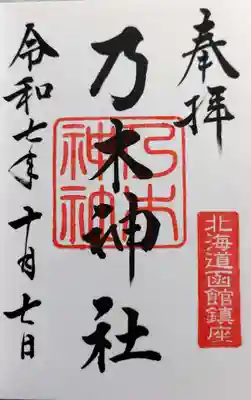 奉拝
北海道函館鎮座
乃木神社
令和七年十月七日